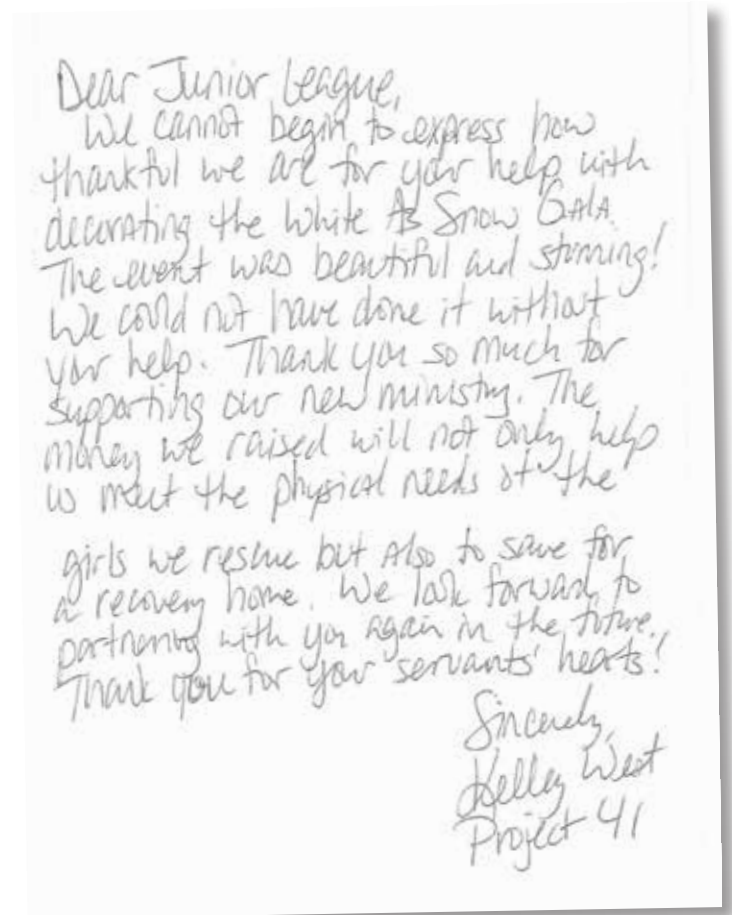 Dear Junior League,
We cannot begin to express how
thankful we are for your help with
decorating the White As Snow GALA.
The event was beautiful and stunning!
We could not have done it without
your help. Thank you so much for
supporting our new ministry. The
money we raised will not only help
us meet the physical needs of the
girls we rescue but also to save for
a recovery home. We look forward to
partnering with you again in the future.
Thank you for your servants' hearts!
Sincerely,
Kelley West
Project 41